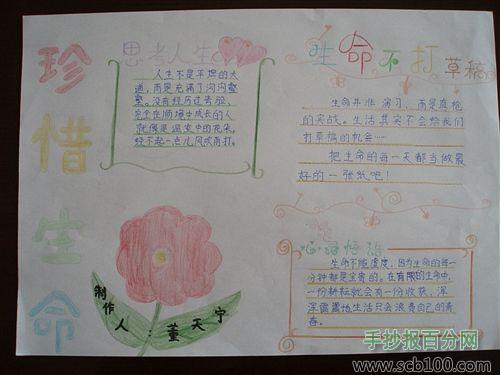 珍惜生命
思考人生
人生不是平坦的大
道，而是充满了沟沟壑
壑。没有经历过考验，
完全在顺境中成长的人
就像是温室中的花朵，
经不起一点儿风吹雨打。
生命不打草稿
生命并非演习，而是真枪
的实战。生活其实不会给我们
打草稿的机会……
把生命的每一天都当做最
好的一张纸吧！
制作
人：董天宁
心灵悟语
生命不能虚度，因为生命的每一
分钟都是宝贵的。在有限的生命中，
一份耕耘就会有一份收获，浑
浑噩噩地生活只会浪费自己的青
春。
手抄报百分网
www.scb100.com